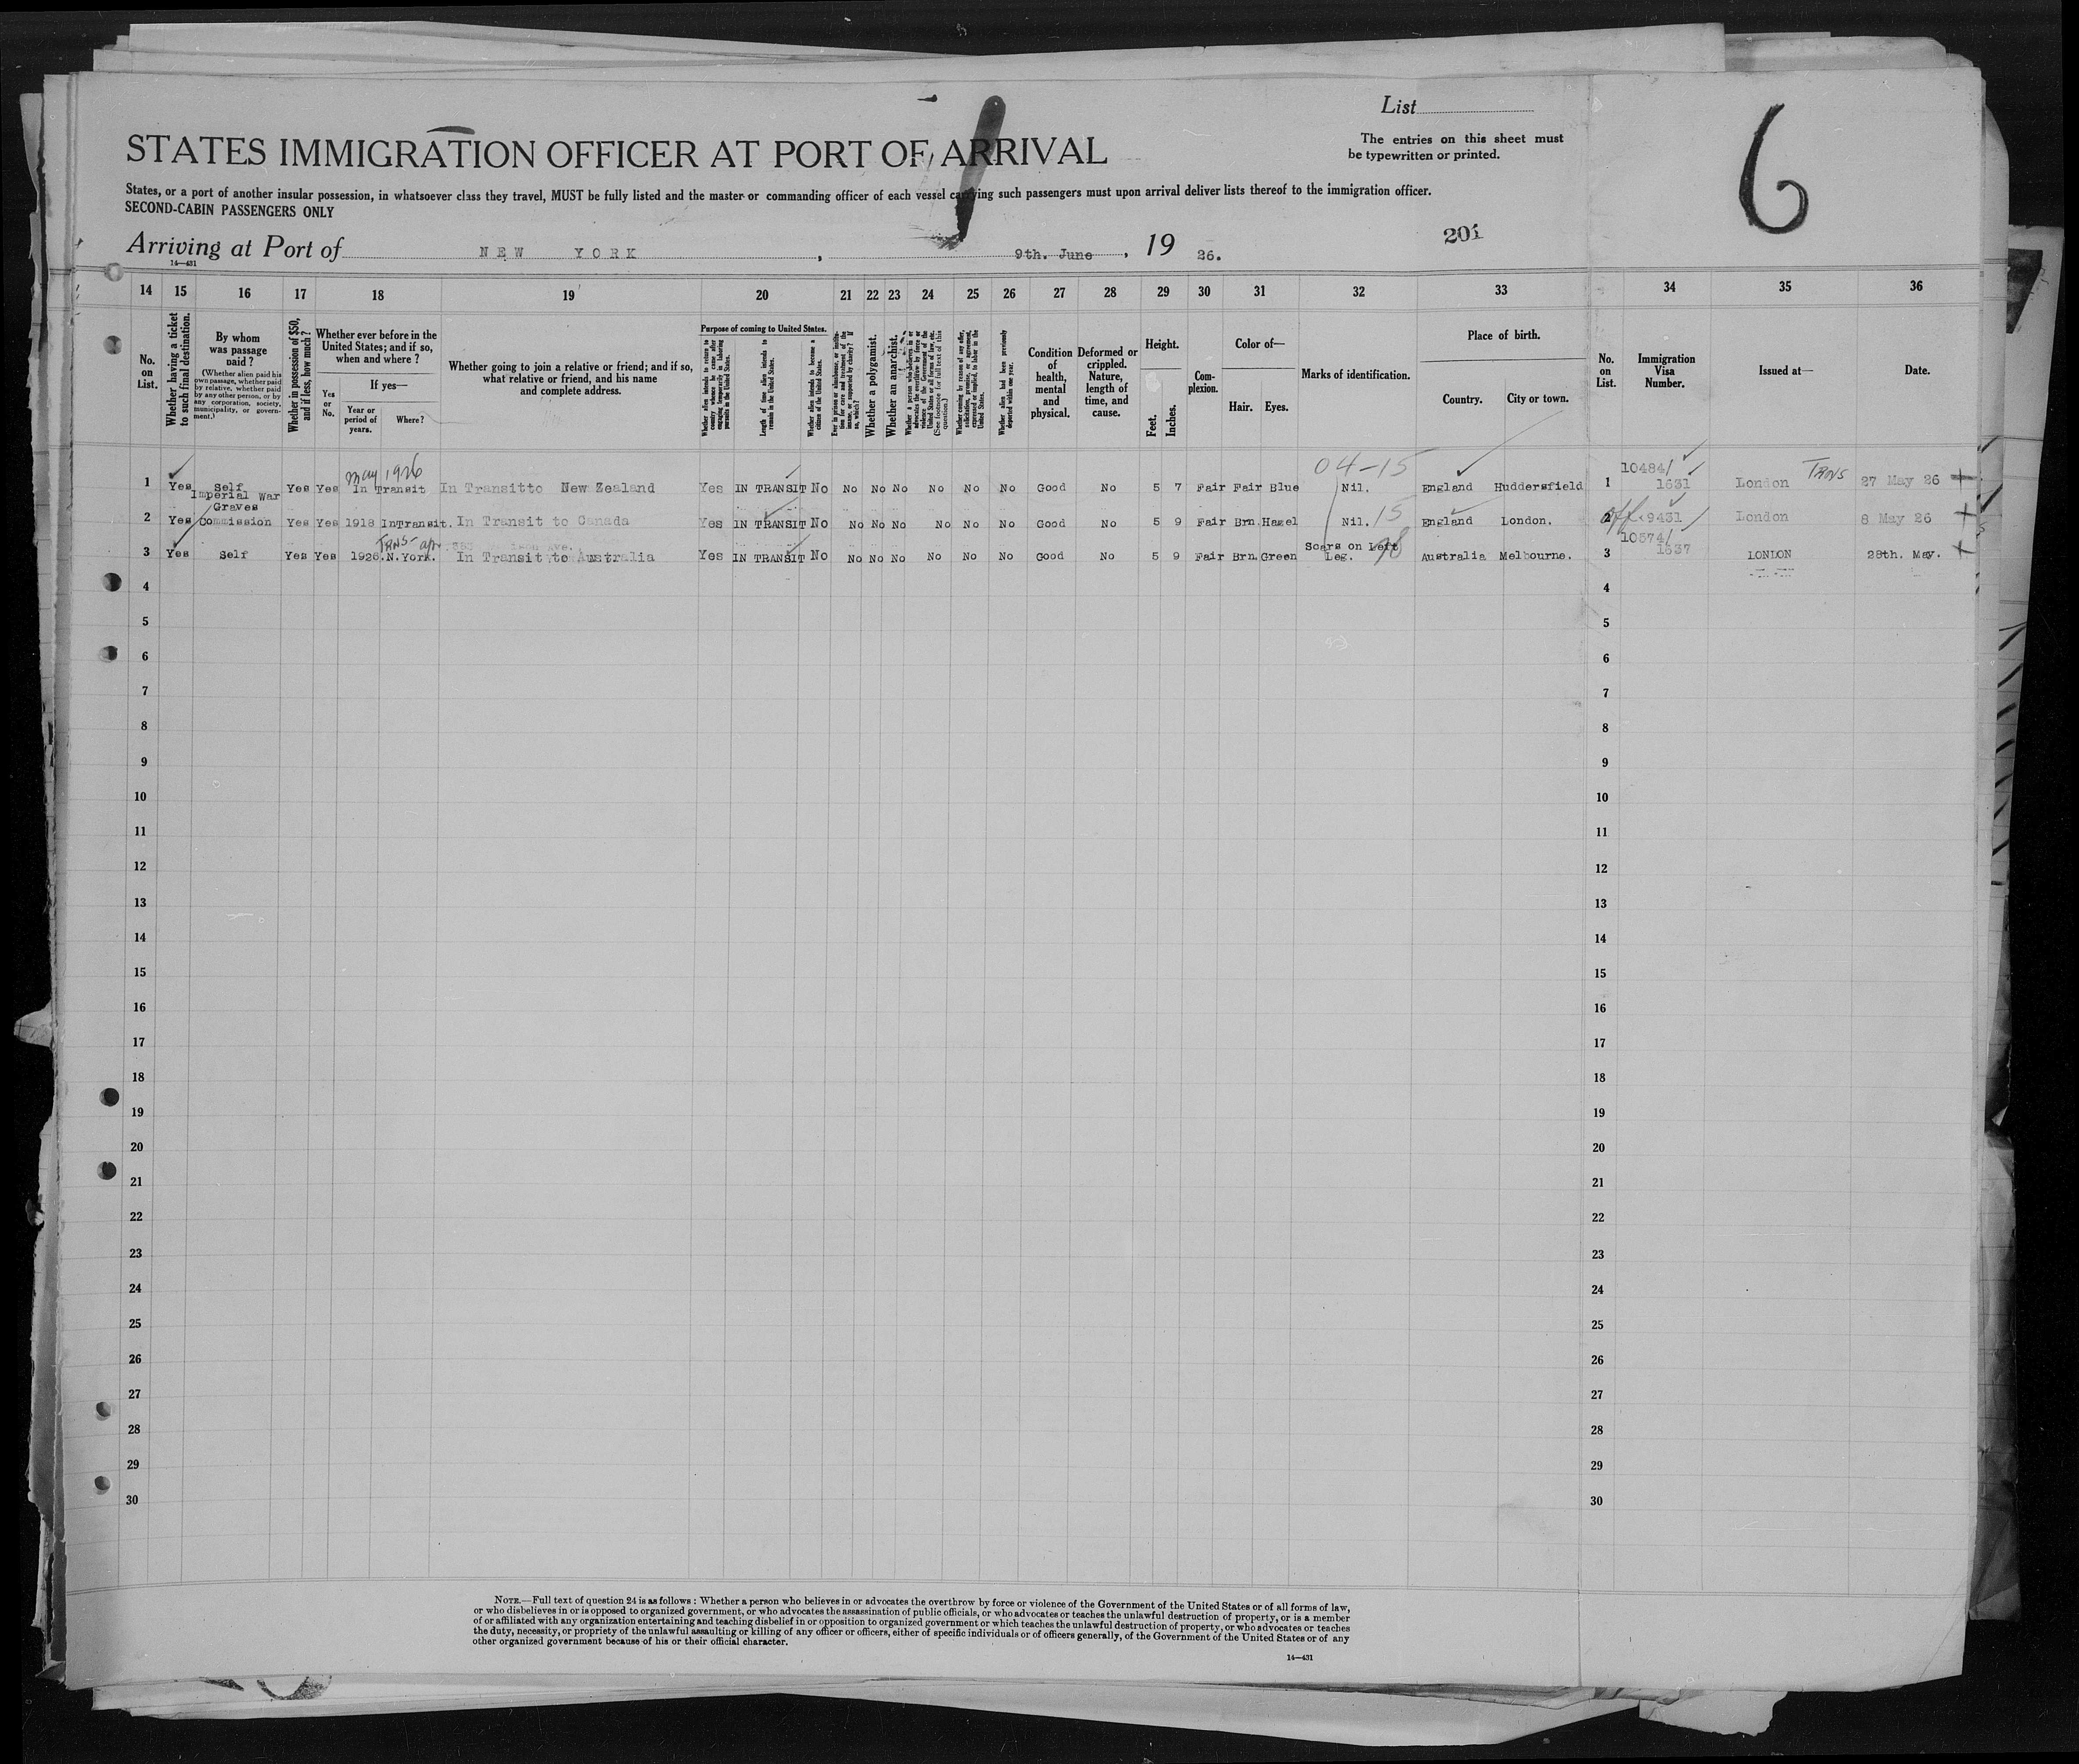 List
STATES IMMIGRATION OFFICER AT PORT OF ARRIVAL
The entries on this sheet must
be typewritten or printed.
6
States, or a port of another insular possession, in whatsoever class they travel, MUST be fully listed and the master or commanding officer of each vessel carrying such passengers must upon arrival deliver lists thereof to the immigration officer.
SECOND-CABIN PASSENGERS ONLY
Arriving at Port of NEW YORK, 9th. June, 19 26.
201
14—431
14 15 16 17 18 19 20 21 22 23 24 25 26 27 28 29 30 31 32 33 34 35 36
No. on List.
Whether having a ticket to such final destination.
By whom was passage paid?
(Whether alien paid his own passage, whether paid by relative, whether paid by any other person, or by any corporation, society, municipality, or government.)
Whether in possession of $50, and if less, how much?
Whether ever before in the United States; and if so, when and where?
Yes or No.
If yes—
Year or period of years.
Where?
Whether going to join a relative or friend; and if so, what relative or friend, and his name and complete address.
Purpose of coming to United States.
Whether alien intends to return to country whence he came after engaging temporarily in laboring pursuits in the United States.
Length of time alien intends to remain in the United States.
Whether alien intends to become a citizen of the United States.
Ever in prison or almshouse, or institution for care and treatment of the insane, or supported by charity? If so, which?
Whether a polygamist.
Whether an anarchist.
(See footnote for full text of this question.)
Whether coming by reason of any offer, solicitation, promise, or agreement, expressed or implied, to labor in the United States.
Whether alien had been previously deported within one year.
Condition of health, mental and physical.
Deformed or crippled. Nature, length of time, and cause.
Height.
Feet.
Inches.
Complexion.
Color of—
Hair.
Eyes.
Marks of identification.
Place of birth.
Country.
City or town.
No. on List.
Immigration Visa Number.
Issued at—
Date.
May 1926
04-15
10484/
TRNS
1 Yes Self Yes Yes In Transit In Transit to New Zealand Yes IN TRANSIT No No No No No No No Good No 5 7 Fair Fair Blue Nil. England Huddersfield 1 1631 London 27 May 26
Imperial War
Graves
2 Yes Commission Yes Yes 1918 InTransit. In Transit to Canada Yes IN TRANSIT No No No No No No No Good No 5 9 Fair Brn. Hazel Nil. 15 England London. 2 9431 London 8 May 26
TRNS-
10574/
3 Yes Self Yes Yes 1926. N.York. In Transit to Australia Yes IN TRANSIT No No No No No No No Good No 5 9 Fair Brn. Green Scars on Left Leg. 98 Australia Melbourne. 3 1637 LONDON 28th. May.
4 4
5 5
6 6
7 7
8 8
9 9
10 10
11 11
12 12
13 13
14 14
15 15
16 16
17 17
18 18
19 19
20 20
21 21
22 22
23 23
24 24
25 25
26 26
27 27
28 28
29 29
30 30
NOTE.—Full text of question 24 is as follows: Whether a person who believes in or advocates the overthrow by force or violence of the Government of the United States or of all forms of law,
or who disbelieves in or is opposed to organized government, or who advocates the assassination of public officials, or who advocates or teaches the unlawful destruction of property, or is a member
of or affiliated with any organization entertaining and teaching disbelief in or opposition to organized government or which teaches the unlawful destruction of property, or who advocates or teaches
the duty, necessity, or propriety of the unlawful assaulting or killing of any officer or officers, either of specific individuals or of officers generally, of the Government of the United States or of any
other organized government because of his or their official character.
14—431